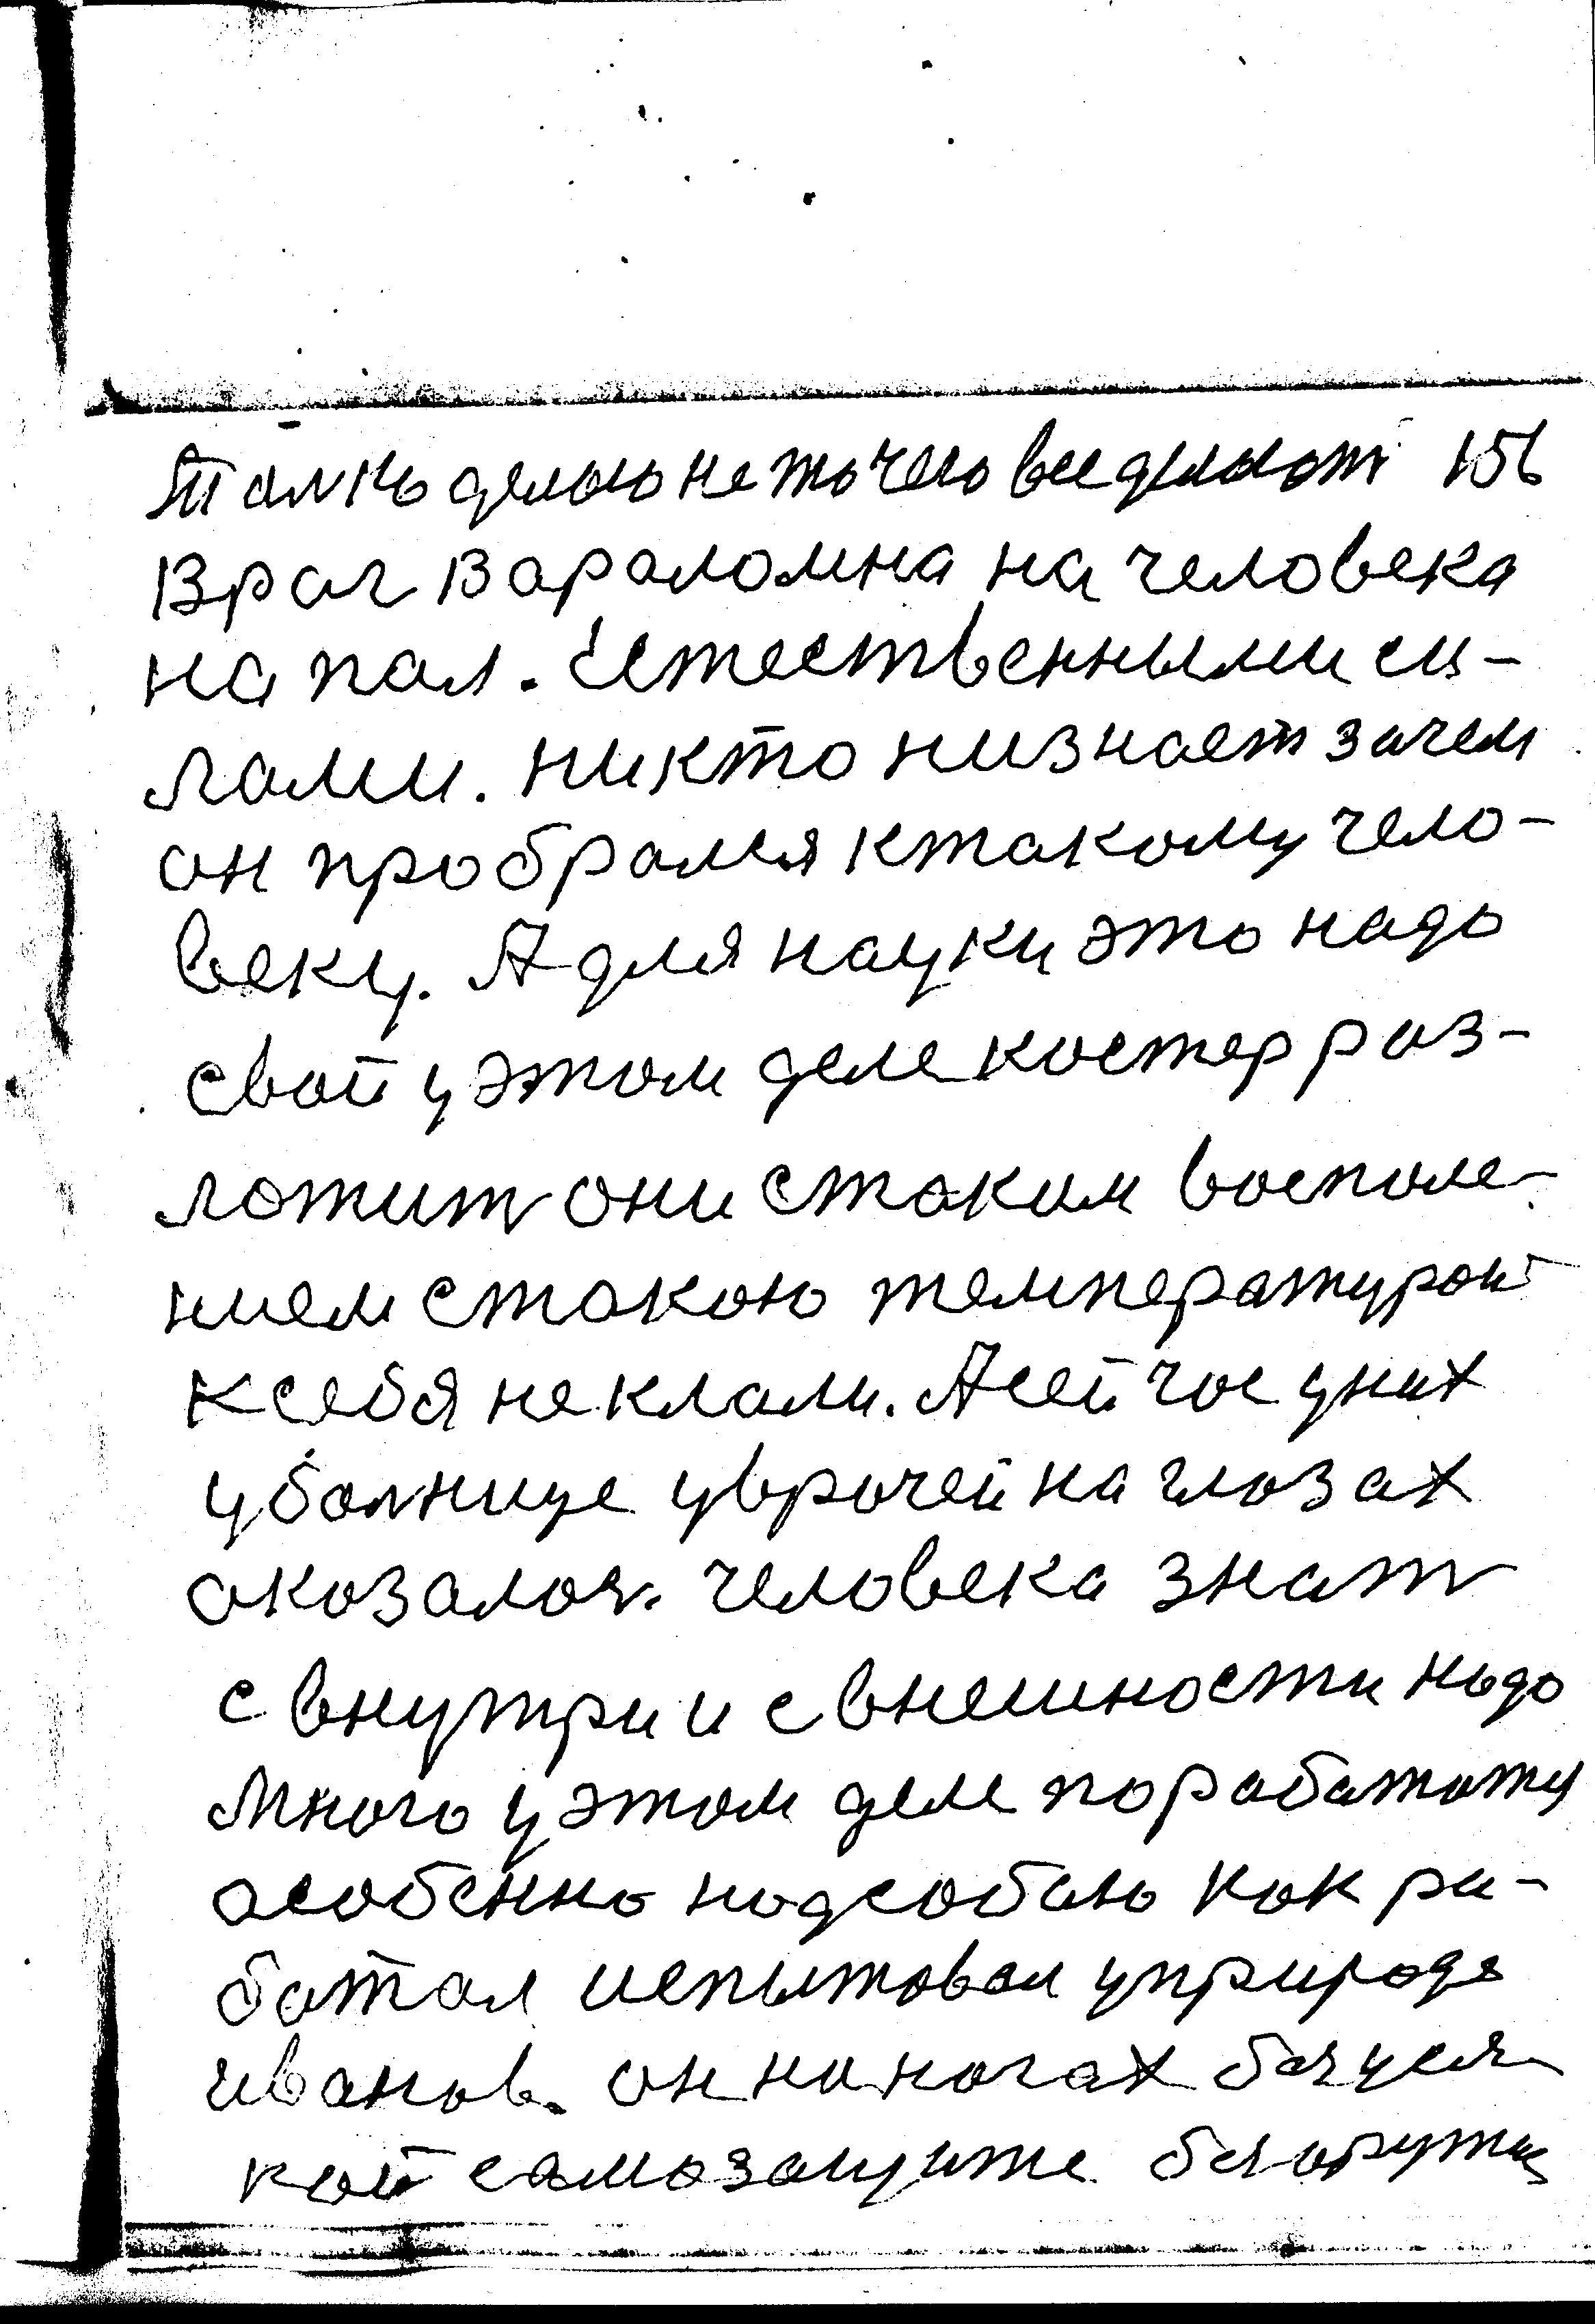 делаю не то чего все делают 156
Враг вораломна на человека
напал. Естественными си-
лами. никто низнает зачем
он пробрался ктакому чело-
веку. А для науки это надо
свой у этом деле костер раз-
ложит они стаким воспале-
нием стакою температурой
ксебя неклали. Асейчас уних
уболнице уврачей на глазах
оказалося. человека знат
свнутри и свнешности надо
много у этом деле поработату
особенно надсобою как ра-
ботал испытовал уприроде
иванов. он на ногах безуся-
кой самозащите без оружия